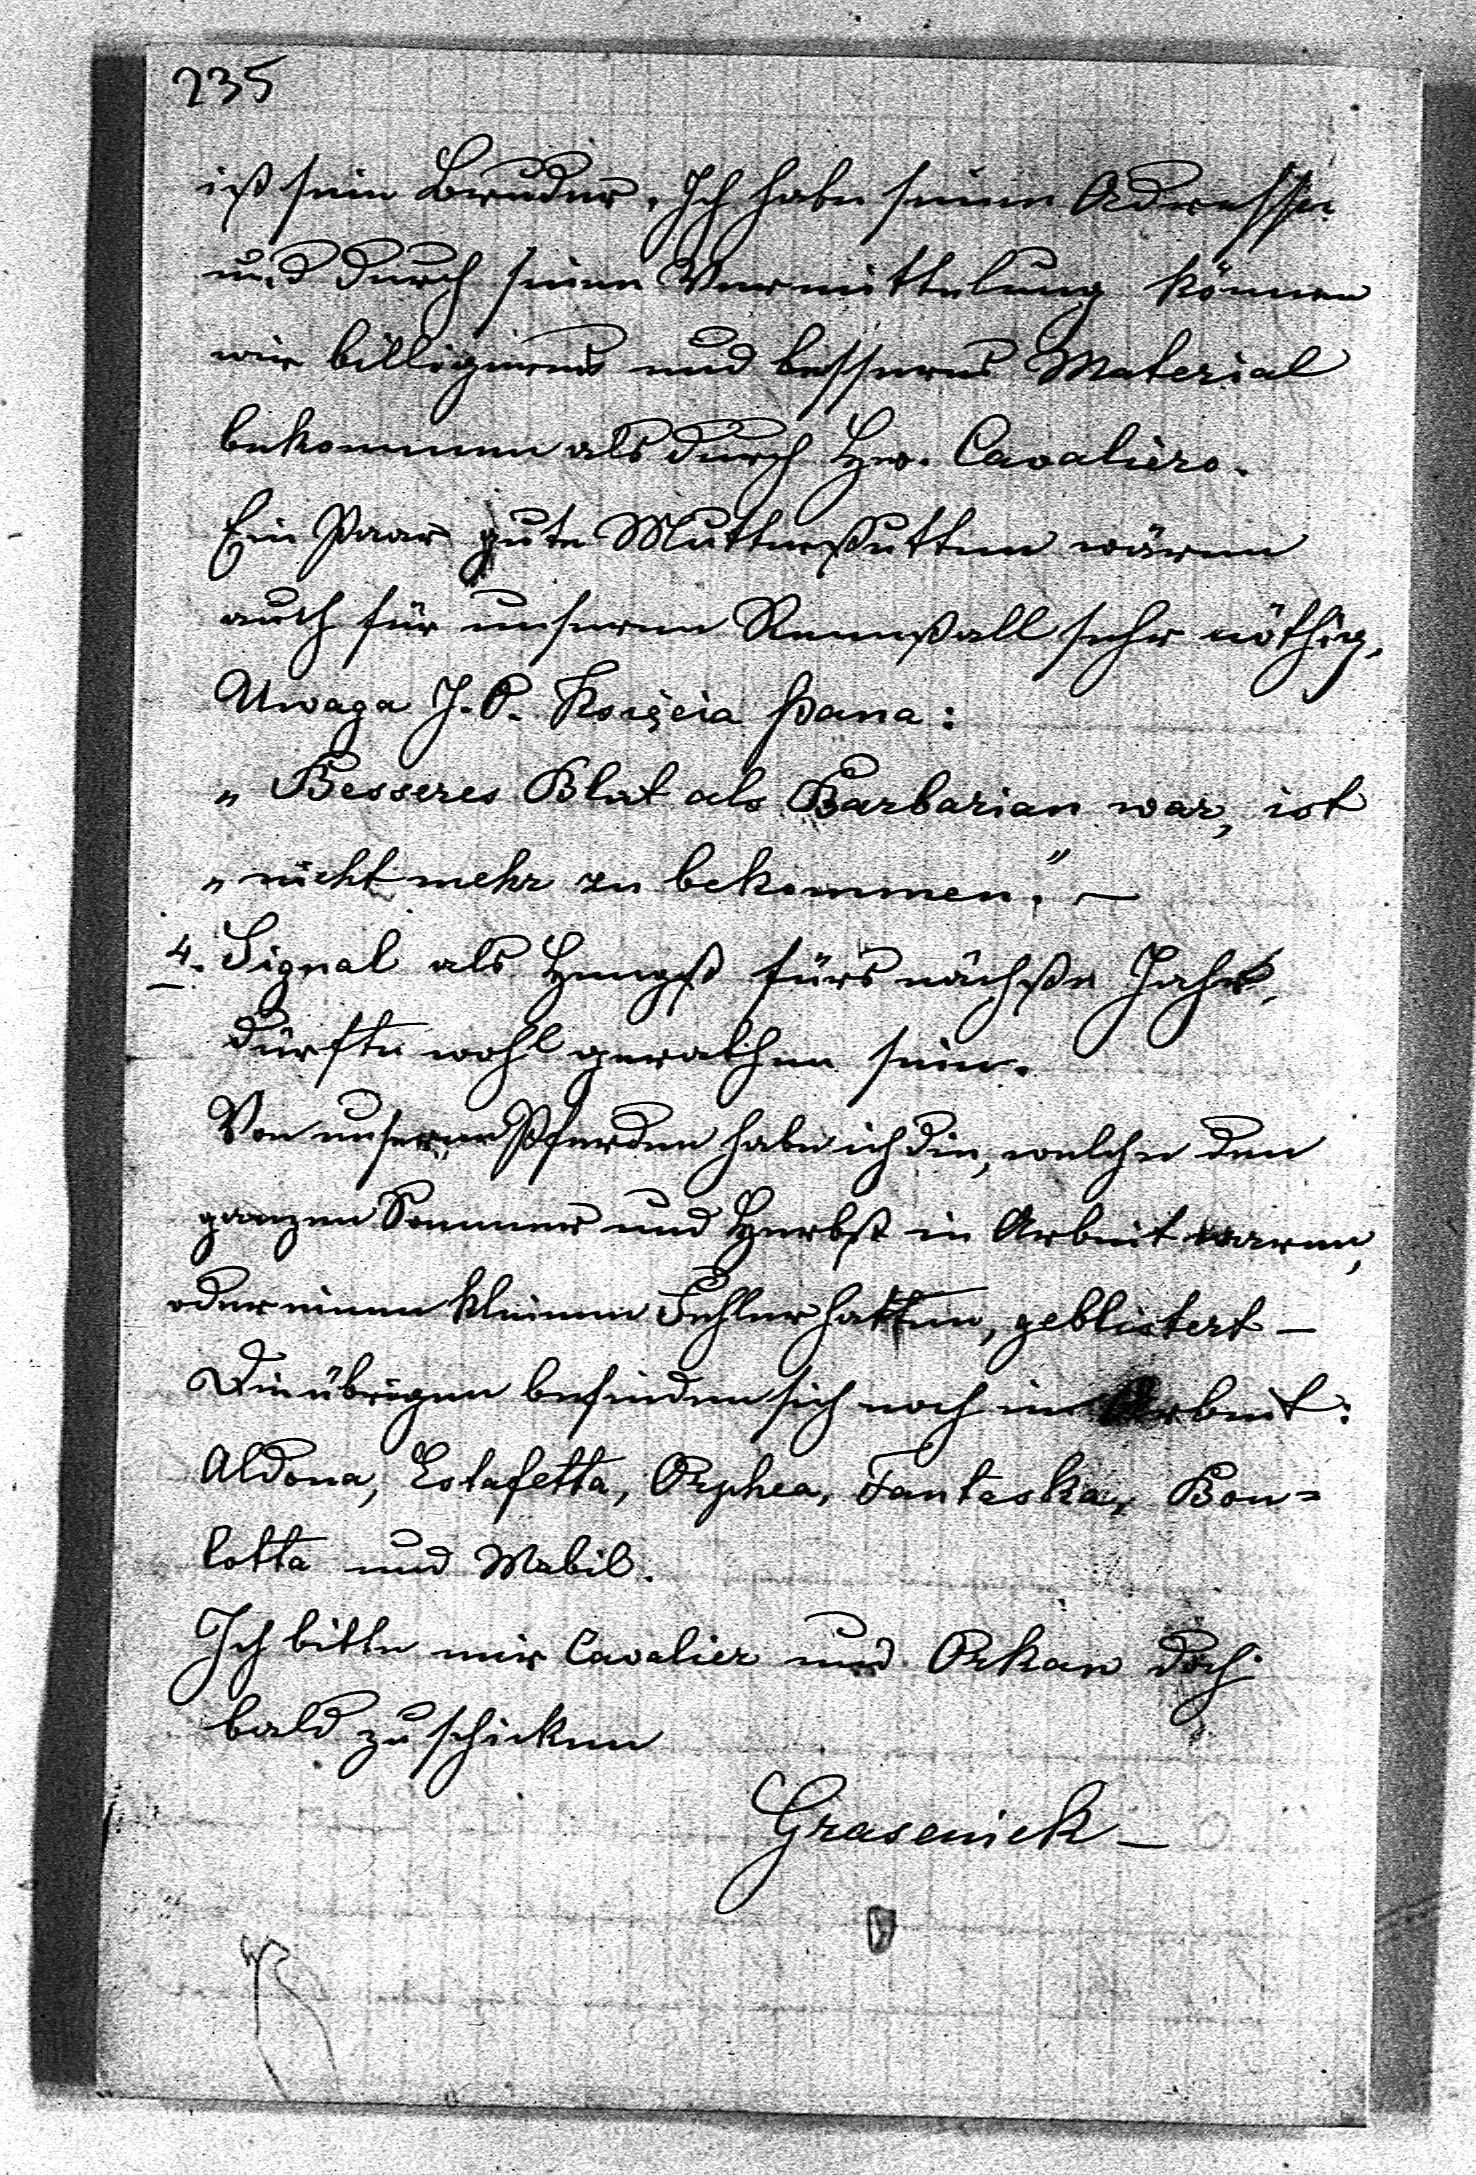 235
ist sein Bruder. Ich habe seine Adresse
und durch seine Vermittelung können
wir billigeres und besseres Material
bekommen als durch Hr. Cavaliero.
Ein Paar gute Mutterstutten wären
auch für unseren Rennstall sehr nöthig.
Uwaga J. O. Księcia Pana:
„Besseres Blut als Barbarian war, ist
„nicht mehr zu bekommen." —
4. Signal als Hengst fürs nächste Jahr,
dürfte wohl gerathen sein.
Von unseren Pferden habe ich die, welche den
ganzen Sommer und Herbst in Arbeit waren,
oder einen kleinen Fehler hatten, geblistert —
Die übrigen befinden sich noch in Arbeit:
Aldona, Estafetta, Orphea, Fantaska, Bon=
lotta und Mabil.
Ich bitte mir Cavalier und Orkan doch
bald zu schicken
Grasenick —